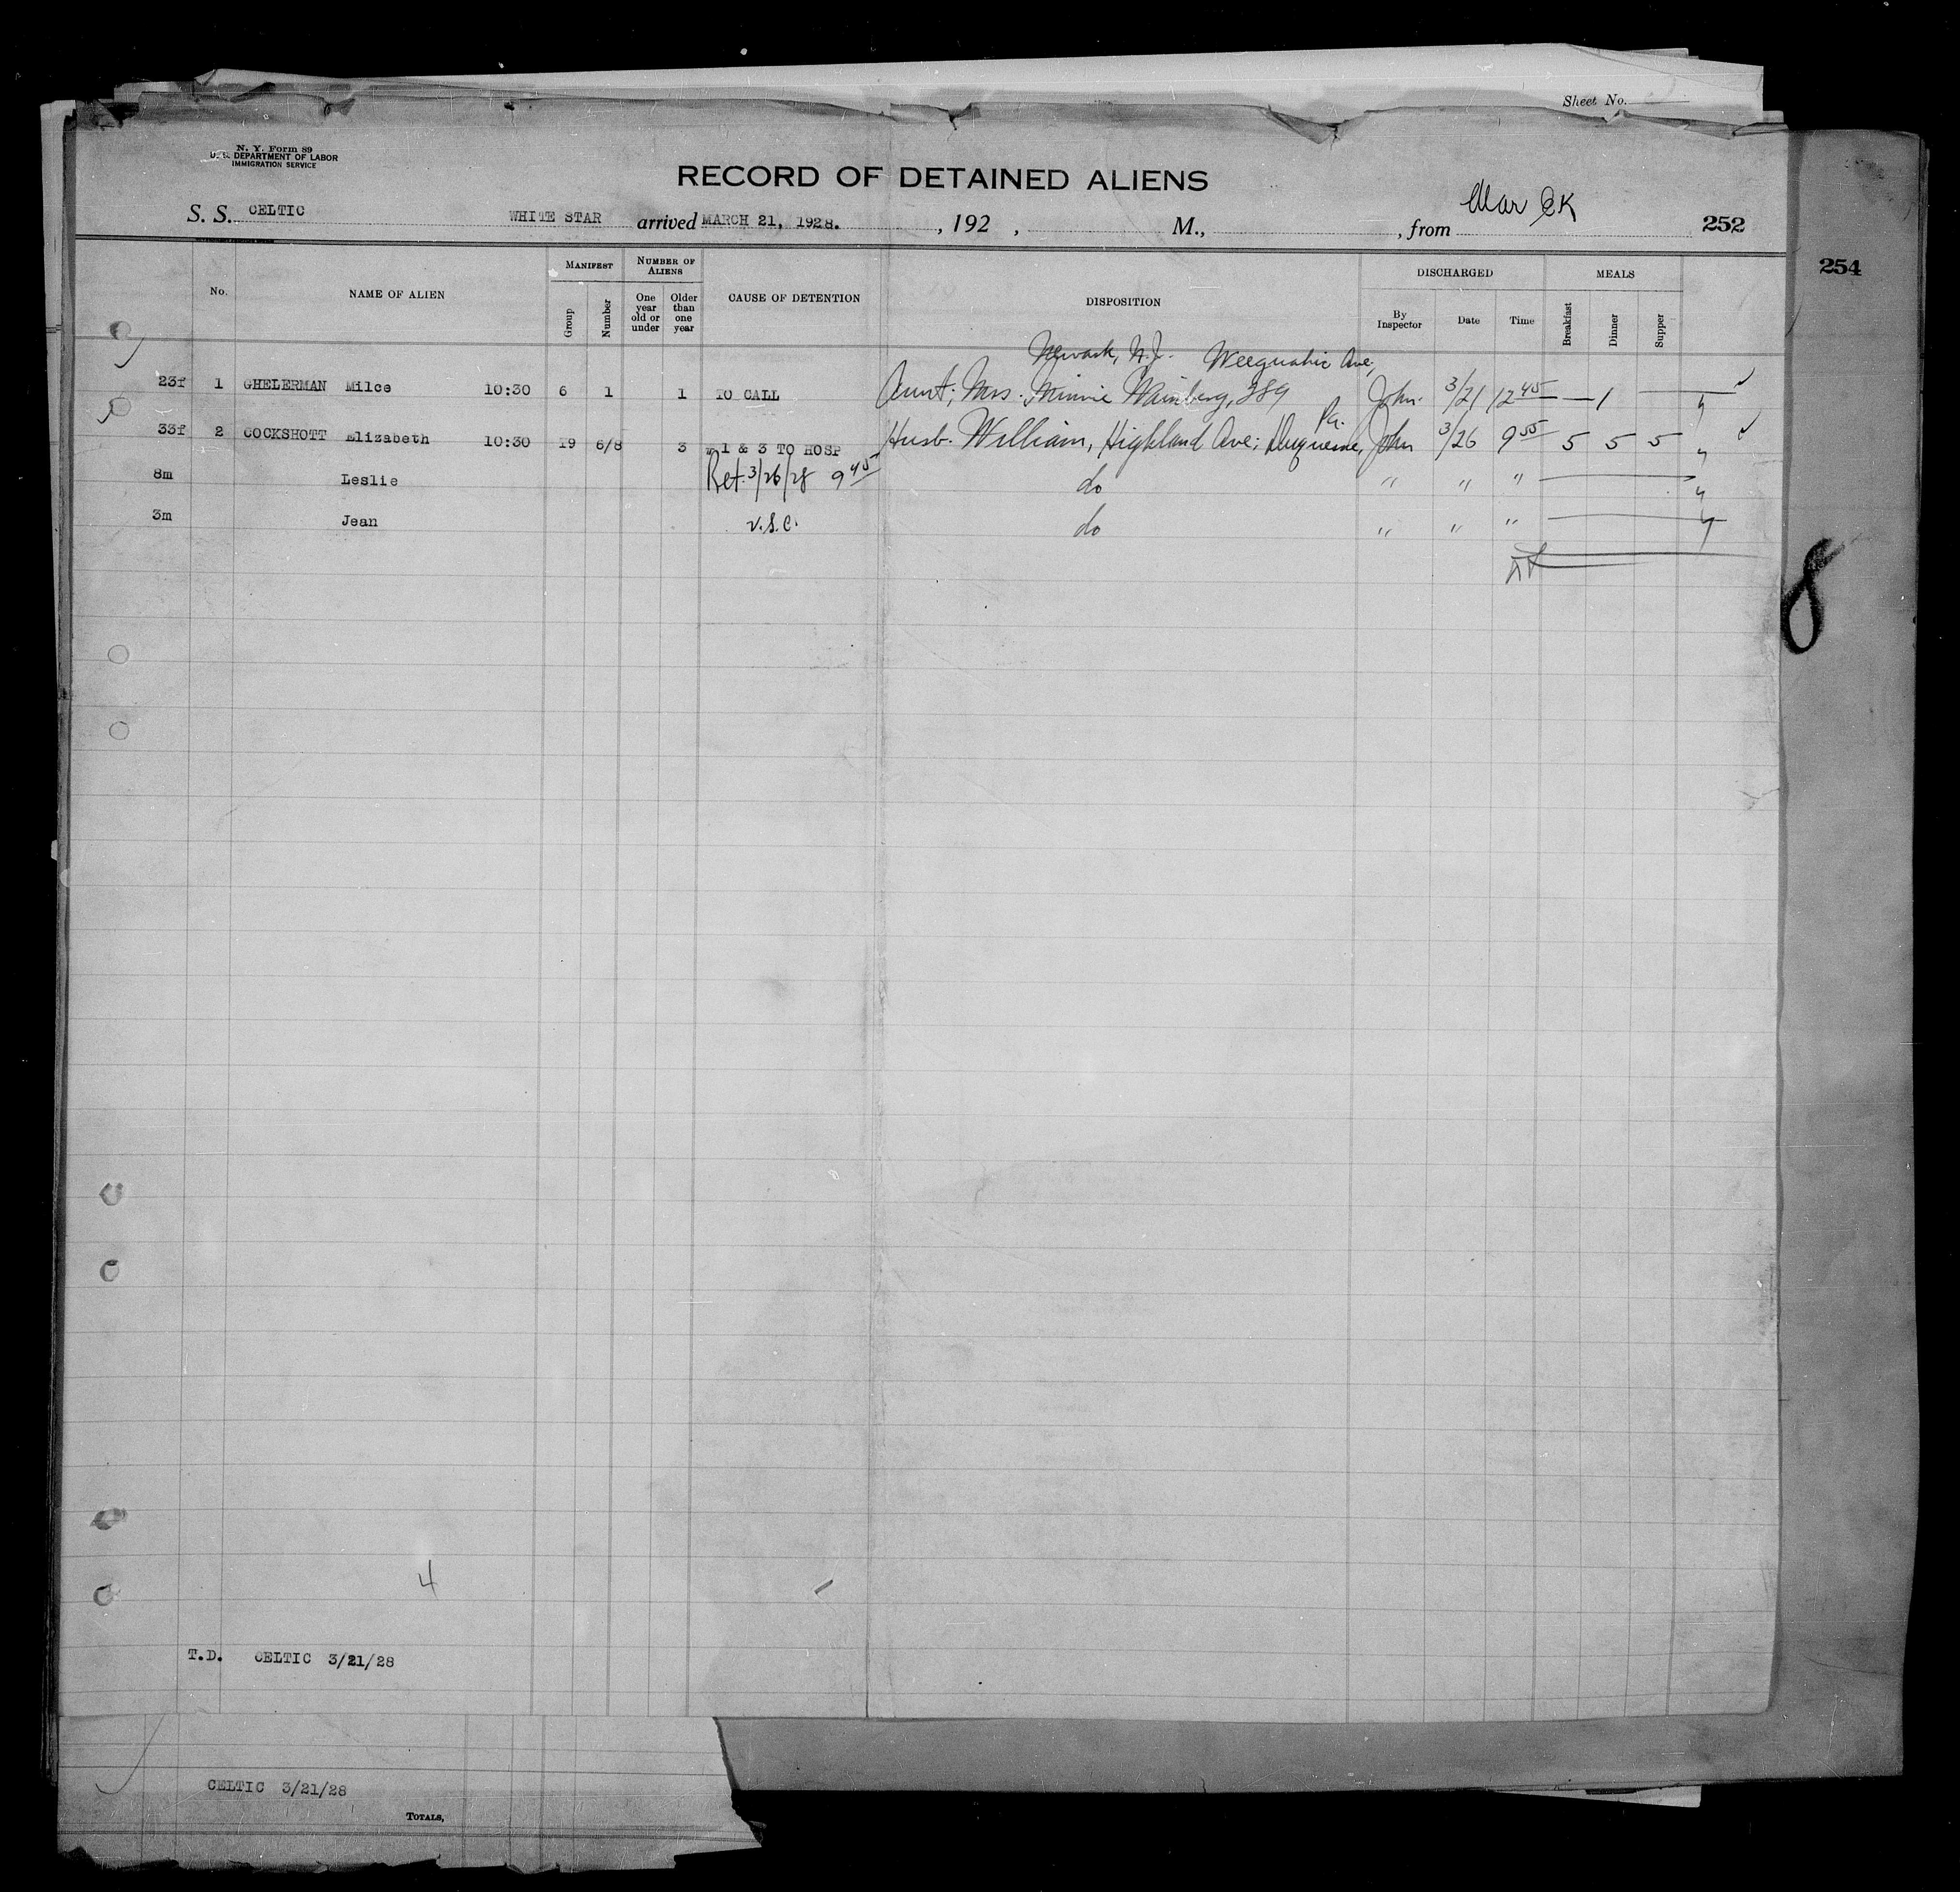 Sheet No.
N. Y. Form 89
U. S. DEPARTMENT OF LABOR
IMMIGRATION SERVICE
RECORD OF DETAINED ALIENS
S. S. CELTIC WHITE STAR arrived MARCH 21, 1928. , 192 , M., , from 252
254
No. NAME OF ALIEN MANIFEST Group Number NUMBER OF ALIENS One year old or under Older than one year CAUSE OF DETENTION DISPOSITION DISCHARGED By Inspector Date Time MEALS Breakfast Dinner Supper
Newark, N.J. Weequahic Ave,
23f 1 GHELERMAN Milce 10:30 6 1 1 TO CALL Aunt; Mrs. Minnie Wainberg, 289 John. 3/21 12 45 — 1
Pa.
33f 2 COCKSHOTT Elizabeth 10:30 19 6/8 3 # 1 & 3 TO HOSP Husb. William, Highland Ave; Duquesne, John 3/26 9 55 5 5 5 "
8m Leslie Ret. 3/26/28 9 45 do " " " "
3m Jean V.S.C. do " " "
8
4
T.D. CELTIC 3/21/28
CELTIC 3/21/28
TOTALS,